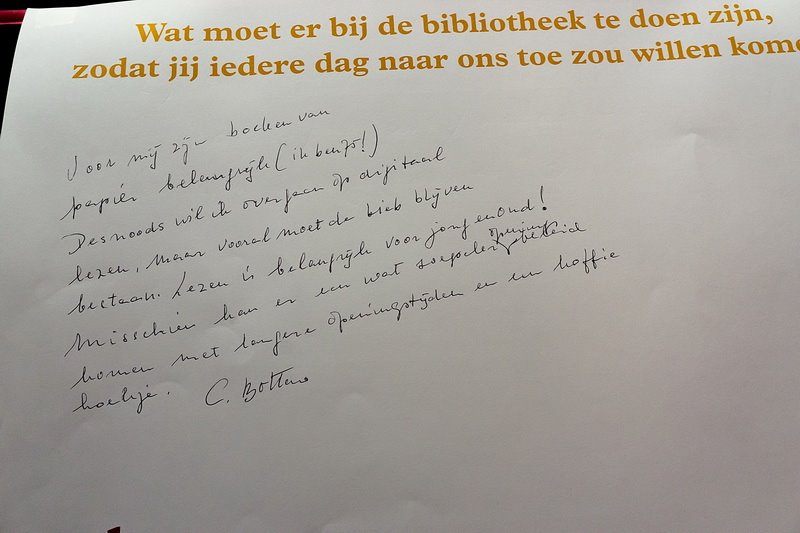 Wat moet er bij de bibliotheek te doen zijn,
zodat jij iedere dag naar ons toe zou willen kome
Voor mij zijn boeken van
papier belangrijk (ik ben 75!)
Desnoods wil ik overgaan op digitaal
lezen, maar vooral moet de bieb blijven
bestaan. Lezen is belangrijk voor jong en oud!
Misschien kan er een wat soepeler openings beleid
komen met langere openingstijden en een koffie
hoekje. C.